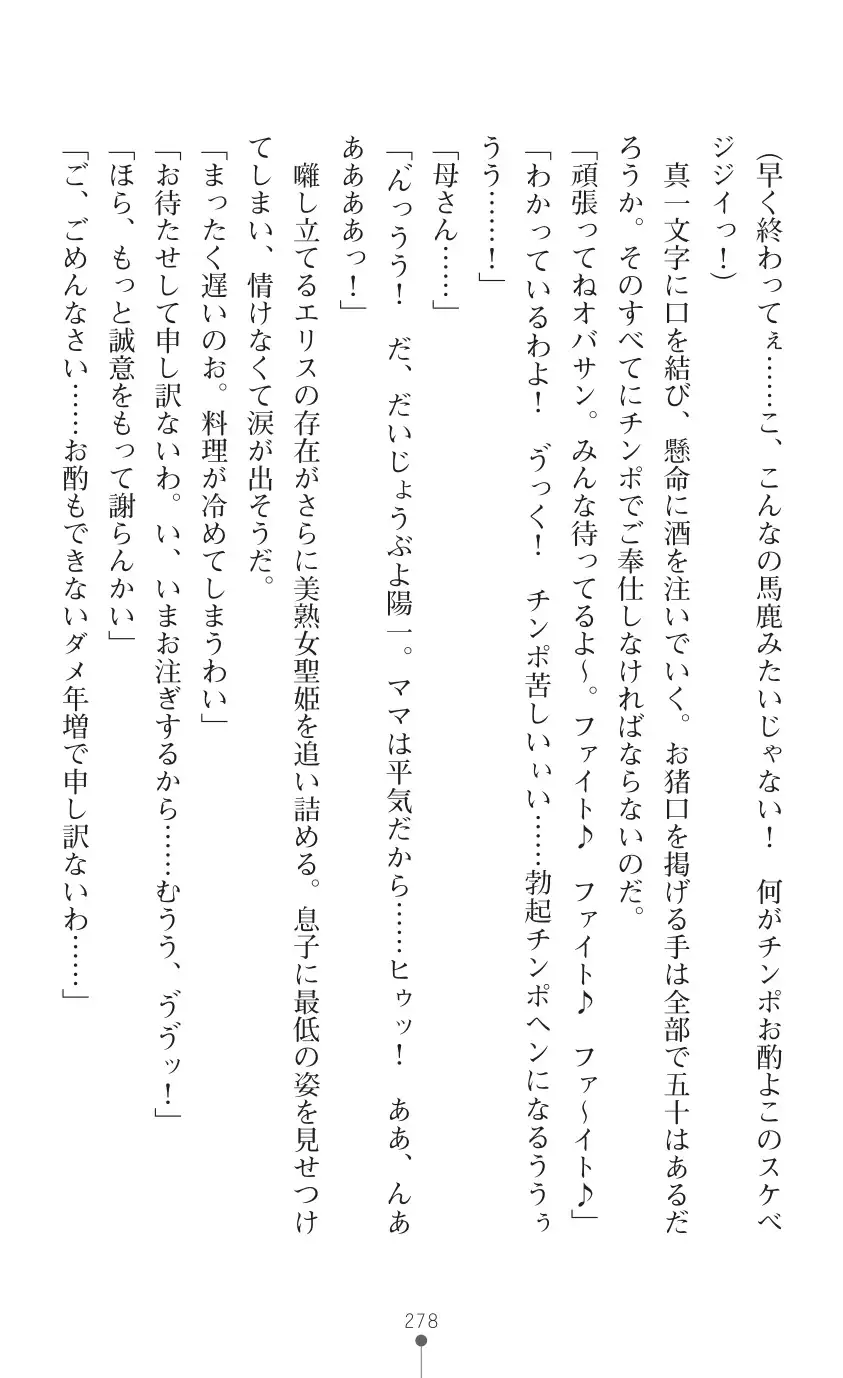 (早く終わってぇ……こ、こんなの馬鹿みたいじゃない！　何がチンポお酌よこのスケベ
ジジイっ！)
　真一文字に口を結び、懸命に酒を注いでいく。お猪口を掲げる手は全部で五十はあるだ
ろうか。そのすべてにチンポでご奉仕しなければならないのだ。
「頑張ってねオバサン。みんな待ってるよ〜。ファイト♪　ファイト♪　ファ〜イト♪」
「わかっているわよ！　ゔっく！　チンポ苦しいぃい……勃起チンポヘンになるううぅ
うう……！」
「母さん……」
「ん゙っうう！　だ、だいじょうぶよ陽一。ママは平気だから……ヒゥッ！　ああ、んあ
ああああっ！」
　囃し立てるエリスの存在がさらに美熟女聖姫を追い詰める。息子に最低の姿を見せつけ
てしまい、情けなくて涙が出そうだ。
「まったく遅いのお。料理が冷めてしまうわい」
「お待たせして申し訳ないわ。い、いまお注ぎするから……むうう、ゔゔッ！」
「ほら、もっと誠意をもって謝らんかい」
「ご、ごめんなさい……お酌もできないダメ年増で申し訳ないわ……」
278